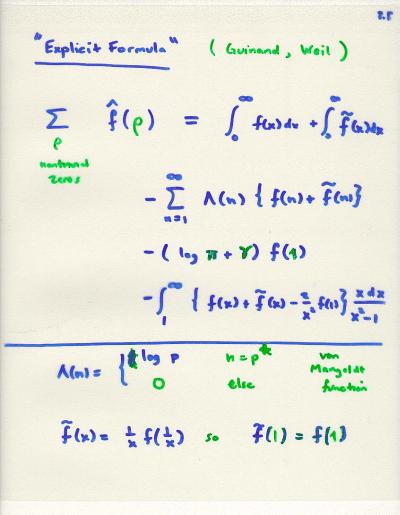 2.5
"Explicit Formula" (Guinand, Weil)
∑ f̂(ρ) = ∫₀^∞ f(x)dx + ∫₀^∞ f̃(x)dx
ρ
nontrivial
zeros
− ∑_{n=1}^∞ Λ(n) { f(n) + f̃(n) }
− (log π + γ) f(1)
− ∫₁^∞ { f(x) + f̃(x) − 2/x² f(1) } x dx / x²−1
Λ(n) = { log p n = pᵏ von
0 else Mangoldt
function
f̃(x) = 1/x f(1/x) so f̃(1) = f(1)